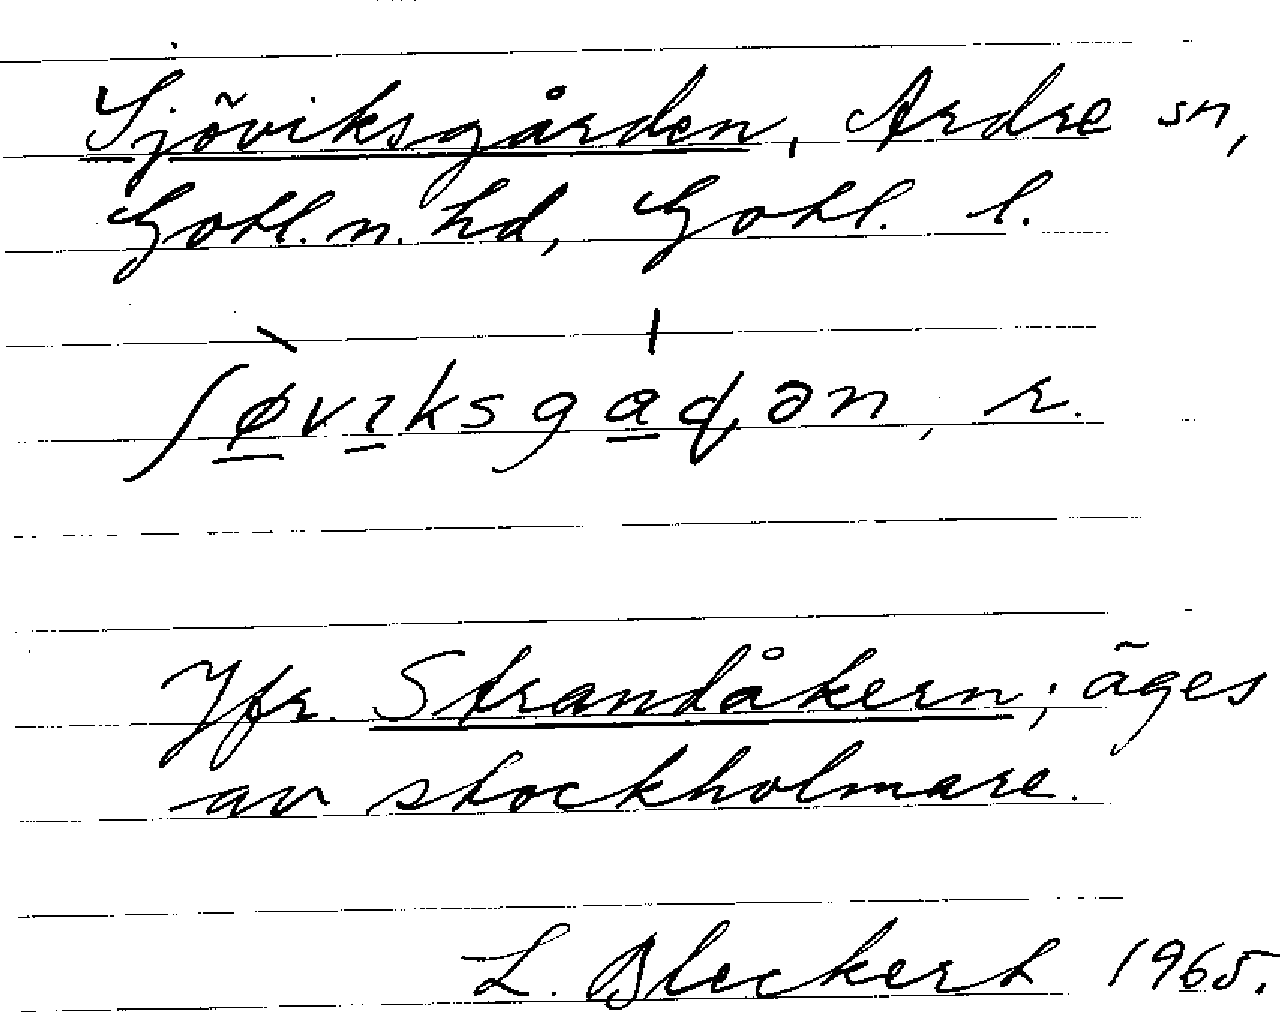 Sjöviksgården, Ardre sn,
Gotl. n. hd, Gotl. l.
ʃø̲vı̲ksga̲ɖən, r.
Jfr. Strandåkern; äges
av stockholmare.
L. Bleckert 1965.